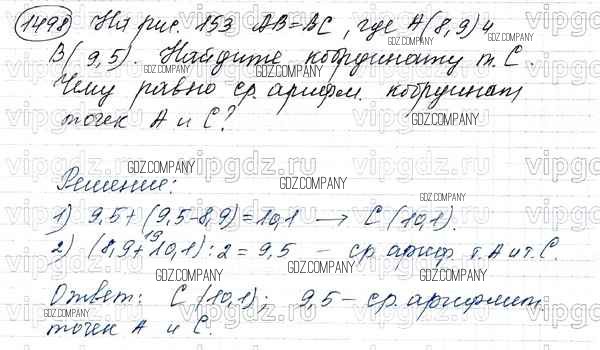 1498 На рис. 153 AB=BC, где A(8,9) и
B(9,5). Найдите координату т. C.
Чему равно ср. арифм. координат
точек A и C?
GDZ.COMPANY
Решение:
1) 9,5+(9,5-8,9)=10,1 → C(10,1).
2) (8,9+10,1):2=9,5 – ср. ариф. т. A и т. C.
19
Ответ: C(10,1); 9,5 – ср. арифмет.
точек A и C.
vipgdz.ru